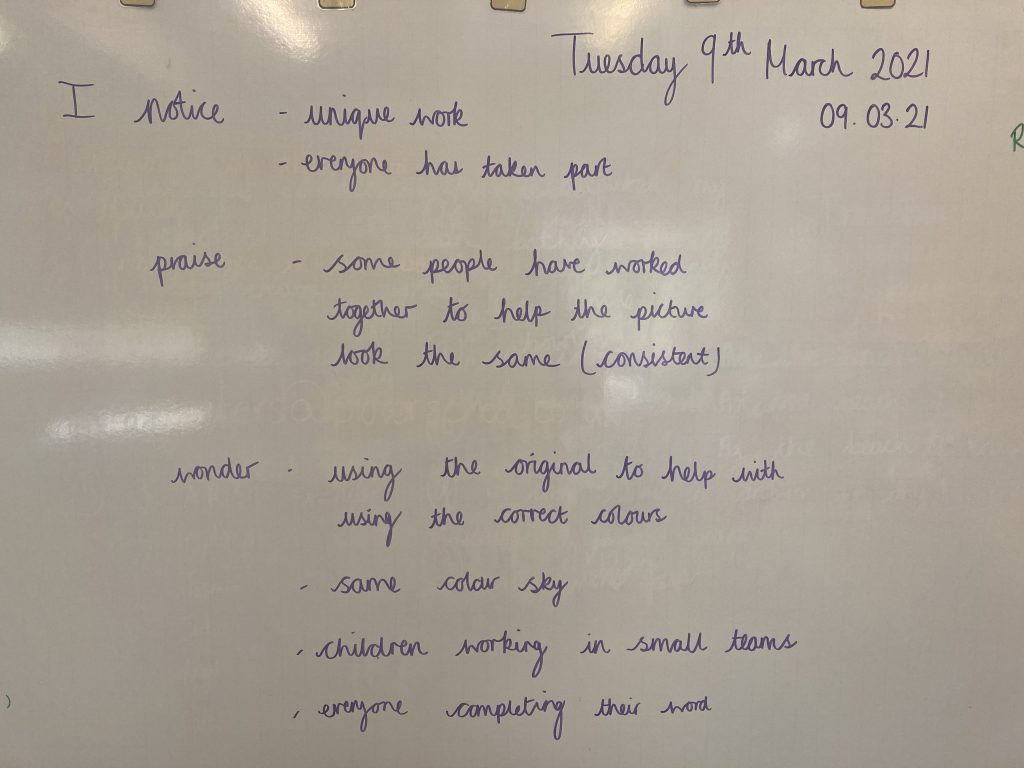 Tuesday 9th March 2021
09.03.21
I notice - unique work
- everyone has taken part
praise - some people have worked
together to help the picture
look the same (consistent)
wonder - using the original to help with
using the correct colours
- same colour sky
- children working in small teams
- everyone completing their word
R